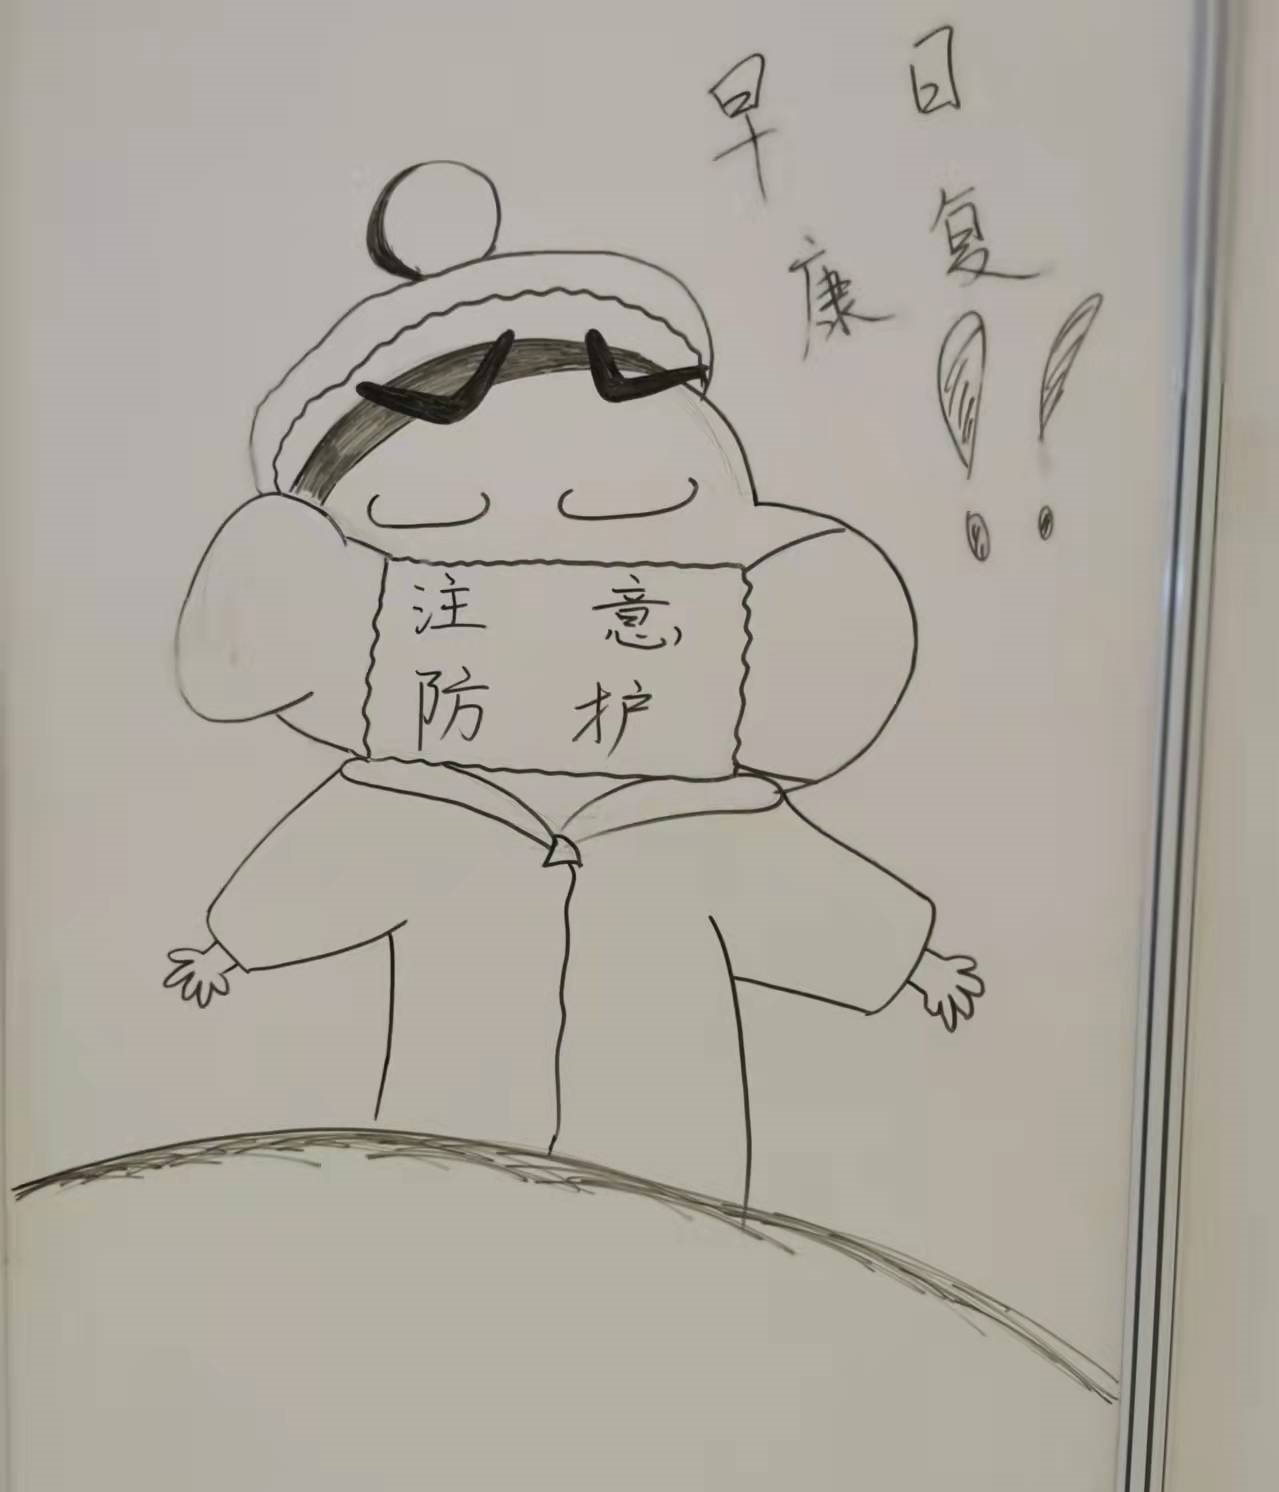 早日
康复!!
注意
防护